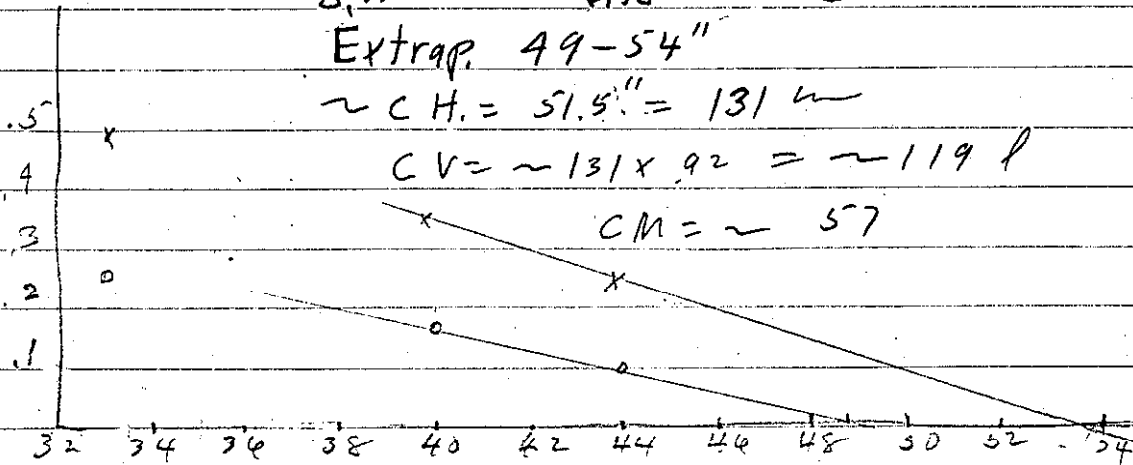 Extrap. 49-54"
~ C H. = 51.5" = 131 cm
C V = ~ 131 x .92 = ~ 119 l
C M = ~ 57
.5
.4
.3
.2
.1
32 34 36 38 40 42 44 46 48 50 52 54